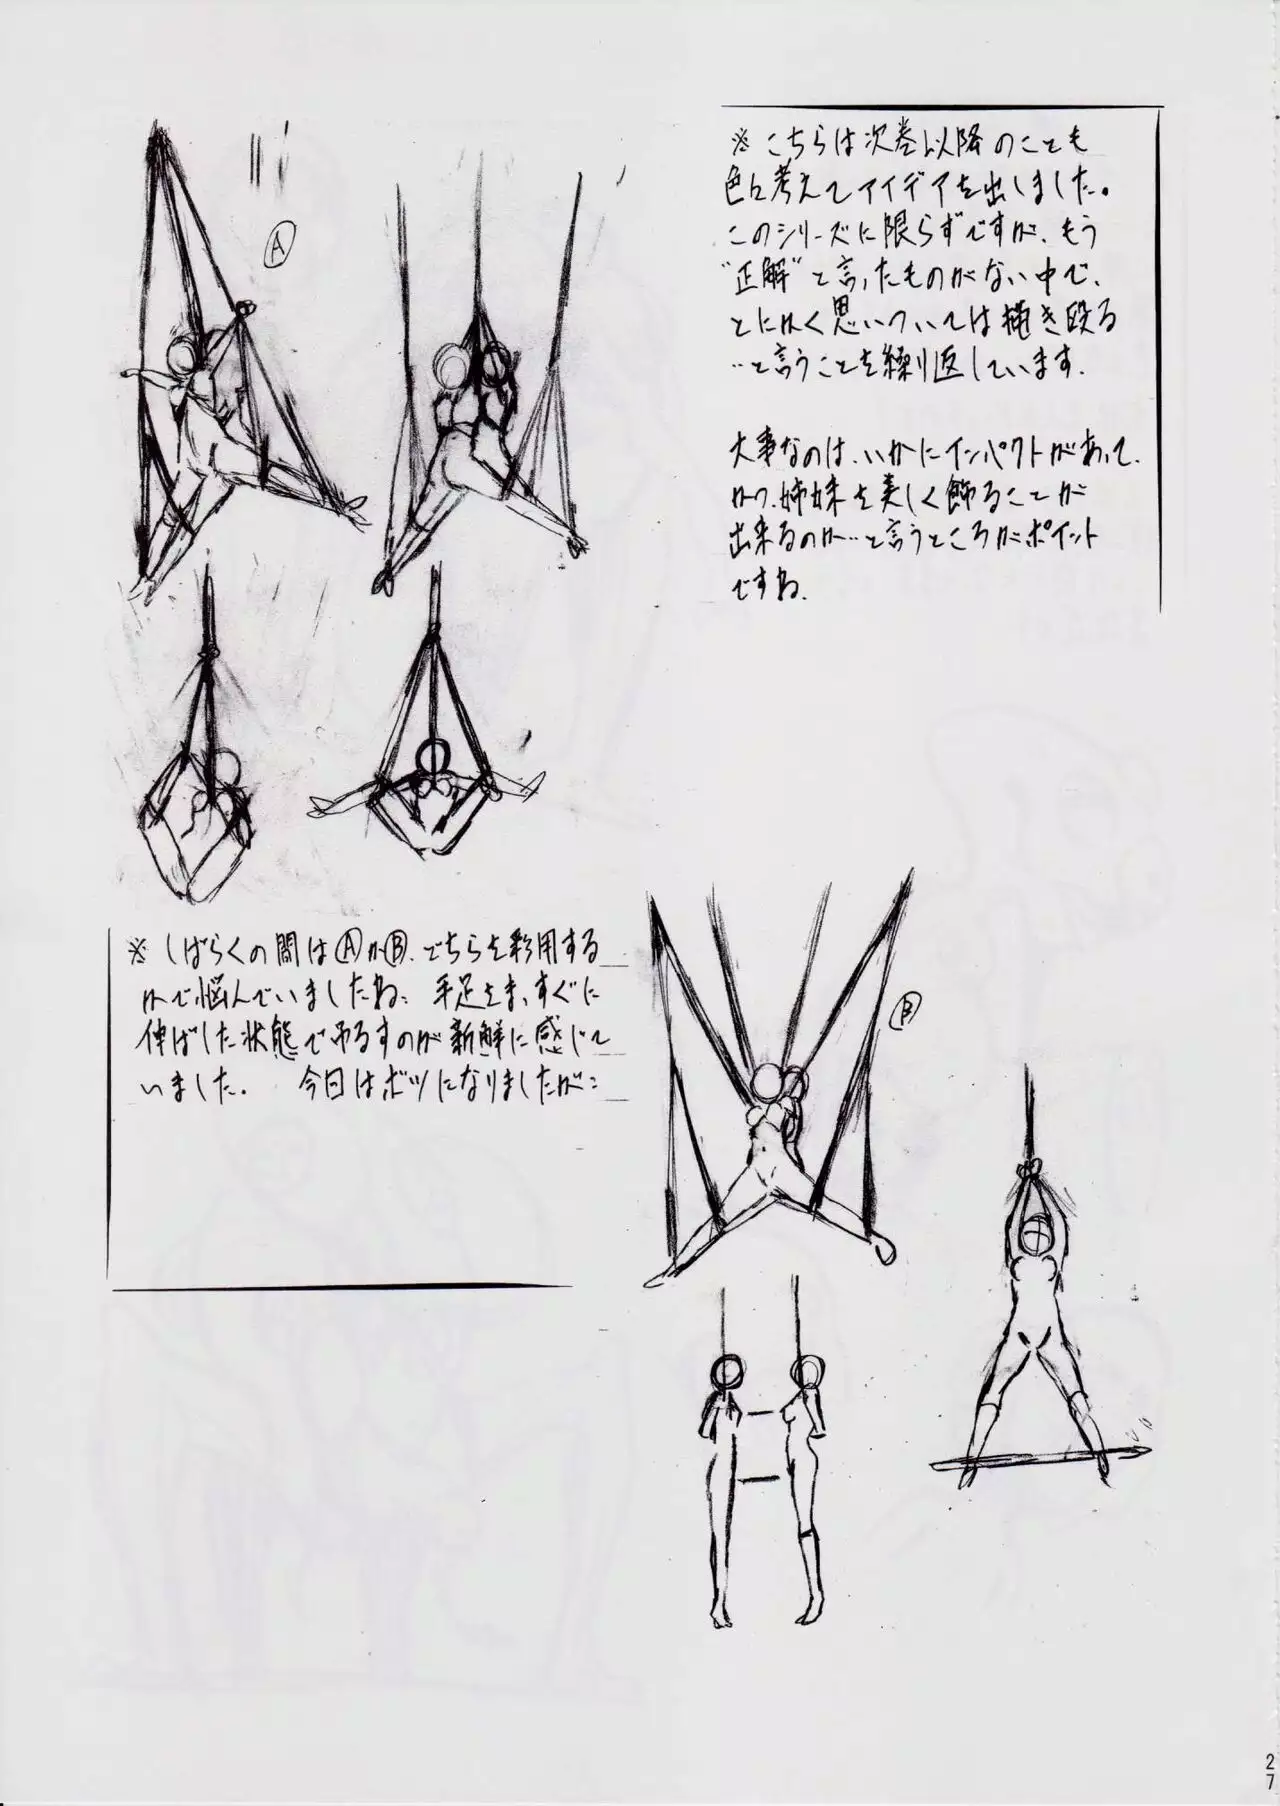 ※ こちらは次巻以降のことも
色々考えてアイデアを出しました。
このシリーズに限らずですが、もう
"正解"と言ったものがない中で、
とにかく思いついては描き殴る
…と言うことを繰り返しています。
大事なのは、いかにインパクトがあって、
かつ、姉妹を美しく飾ることが
出来るのか…と言うところがポイント
ですね。
Ⓐ
※ しばらくの間はⒶかⒷ、どちらを採用する
かで悩んでいましたね… 手足をまっすぐに
伸ばした状態で吊るすのが新鮮に感じて
いました。 今回はボツになりましたが…
Ⓑ
27